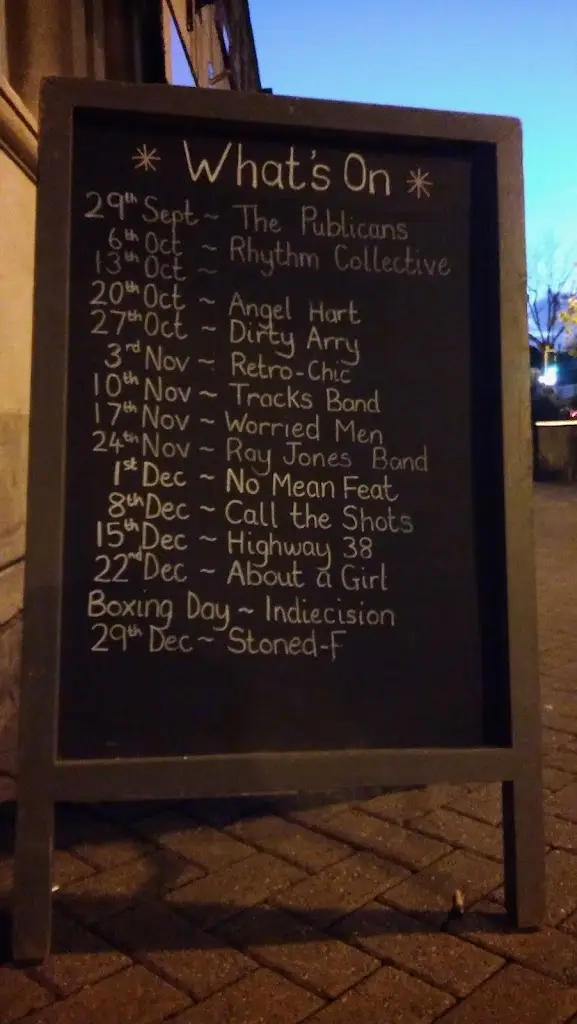 * What's On *
29th Sept ~ The Publicans
6th Oct ~ Rhythm Collective
13th Oct ~
20th Oct ~ Angel Hart
27th Oct ~ Dirty Arry
3rd Nov ~ Retro-Chic
10th Nov ~ Tracks Band
17th Nov ~ Worried Men
24th Nov ~ Ray Jones Band
1st Dec ~ No Mean Feat
8th Dec ~ Call the Shots
15th Dec ~ Highway 38
22nd Dec ~ About a Girl
Boxing Day ~ Indiecision
29th Dec ~ Stoned-F